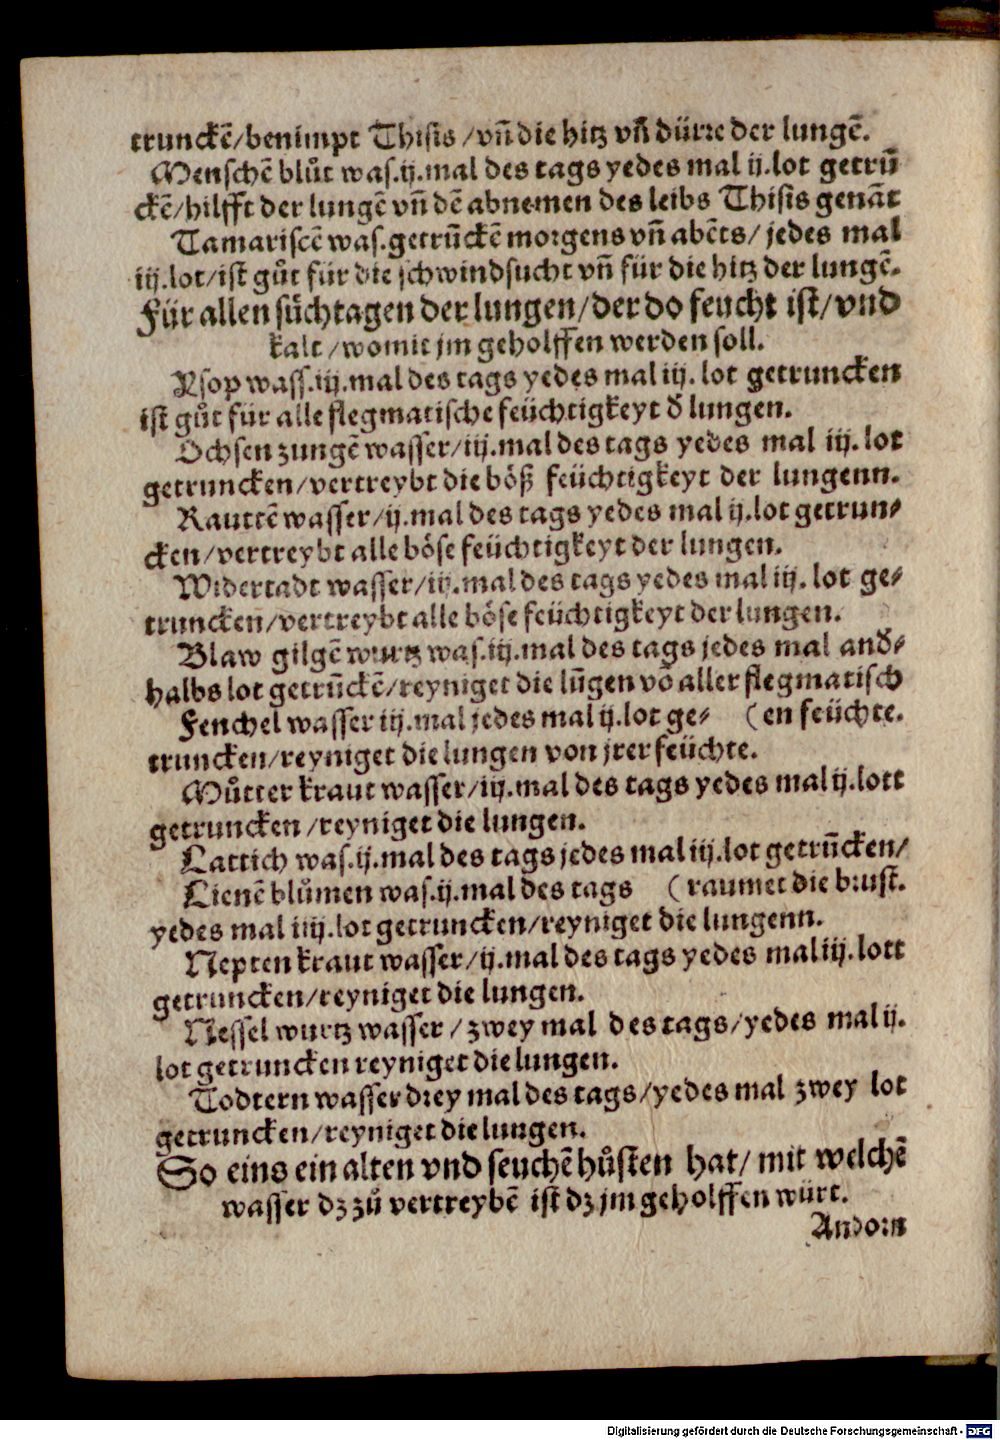 trunckē/benimpt Thisis /vñ die hitz vñ dürre der lungē.
Menschē blůt was.ij.mal des tags yedes mal ij.lot getrū
ckē/hilfft der lungē vñ dē abnemen des leibs Thisis genāt
Tamariscē was.getrūckē morgens vñ abēts/ jedes mal
iij.lot/ist gůt für die schwindsucht vñ für die hitz der lungē.
Für allen süchtagen der lungen/der do feucht ist/vnd
kalt /womit jm geholffen werden soll.
Ysop wass.iij.mal des tags yedes mal iij. lot getruncken
ist gůt für alle flegmatische feüchtigkeyt ď lungen.
Ochsen zungē wasser/iij.mal des tags yedes mal iij. lot
getruncken/vertreybt die böß feüchtigkeyt der lungenn.
Rauttē wasser/ij.mal des tags yedes mal ij.lot getrun⸗
cken/vertreybt alle böse feüchtigkeyt der lungen.
Widertadt wasser/iij.mal des tags yedes mal iij. lot ge⸗
truncken/vertreybt alle böse feüchtigkeyt der lungen.
Blaw gilgē wurtz was.iij.mal des tags jedes mal anď⸗
halbs lot getrūckē/reyniget die lūgen vō aller flegmatisch
Fenchel wasser iij.mal jedes mal ij.lot ge⸗ (en feüchte.
truncken/reyniget die lungen von jrer feüchte.
Můtter kraut wasser/iij.mal des tags yedes mal ij.lott
getruncken /reyniget die lungen.
Lattich was.ij.mal des tags jedes mal iij.lot getrūcken/
Lienē blůmen was.ij.mal des tags (raumet die brust.
yedes mal iiij.lot getruncken/reyniget die lungenn.
Nepten kraut wasser/ij.mal des tags yedes mal iij.lott
getruncken/reyniget die lungen.
Nessel wurtz wasser /zwey mal des tags/yedes mal ij.
lot getruncken reyniget die lungen.
Todtern wasser drey mal des tags/yedes mal zwey lot
getruncken/reyniget die lungen.
So eins ein alten vnd feuchē hůsten hat/ mit welchē
wasser dz zů vertreybē ist dz jm geholffen würt.
Andorn
Digitalisierung gefördert durch die Deutsche Forschungsgemeinschaft - DFG